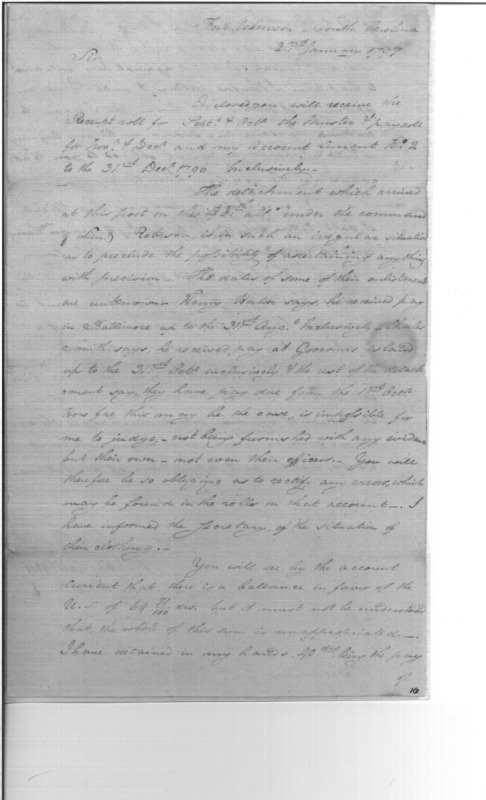 Fort Johnson North Carolina
2nd January 1797
Sir
Enclosed you will receive the
Receipt roll for Sept. & Octr. the Muster & payroll
for Novr. & Decr. and my Account Current No. 2
to the 31st Decr. 1796 Inclusively.-
The detachment which arrived
at this post on the 28th ulto under the command
of Lieut. Robeson is in such an irregular situation
as to preclude the possibility of ascertaining any thing
with precision - The dates of some of their enlistments
are unknown Henry says, he received pay
in Baltimore up to the 31st Aug. Inclusively - Charles
Smith says, he received pay at Governors Island
up to the 31st Octr inclusively, & the rest of the detach
ement say, they have pay due from the 1st Octr
How far this may be the case, is impossible for
me to judge, - not being furnished with any evidence
but their own - not even their officers. - You will
therefore be so obliging as to rectify any errors, which
may be found in the rolls on that account - I
have informed the Secretary, of the situation of
their clothing. -
You will see by the account
Current that, there is a ballance in favor of the
U.S. of 64 /100 dls. but it must not be understood
that, the whole of this sum is unappropriated -
I have detained in my hands 40 being the pay
of
10